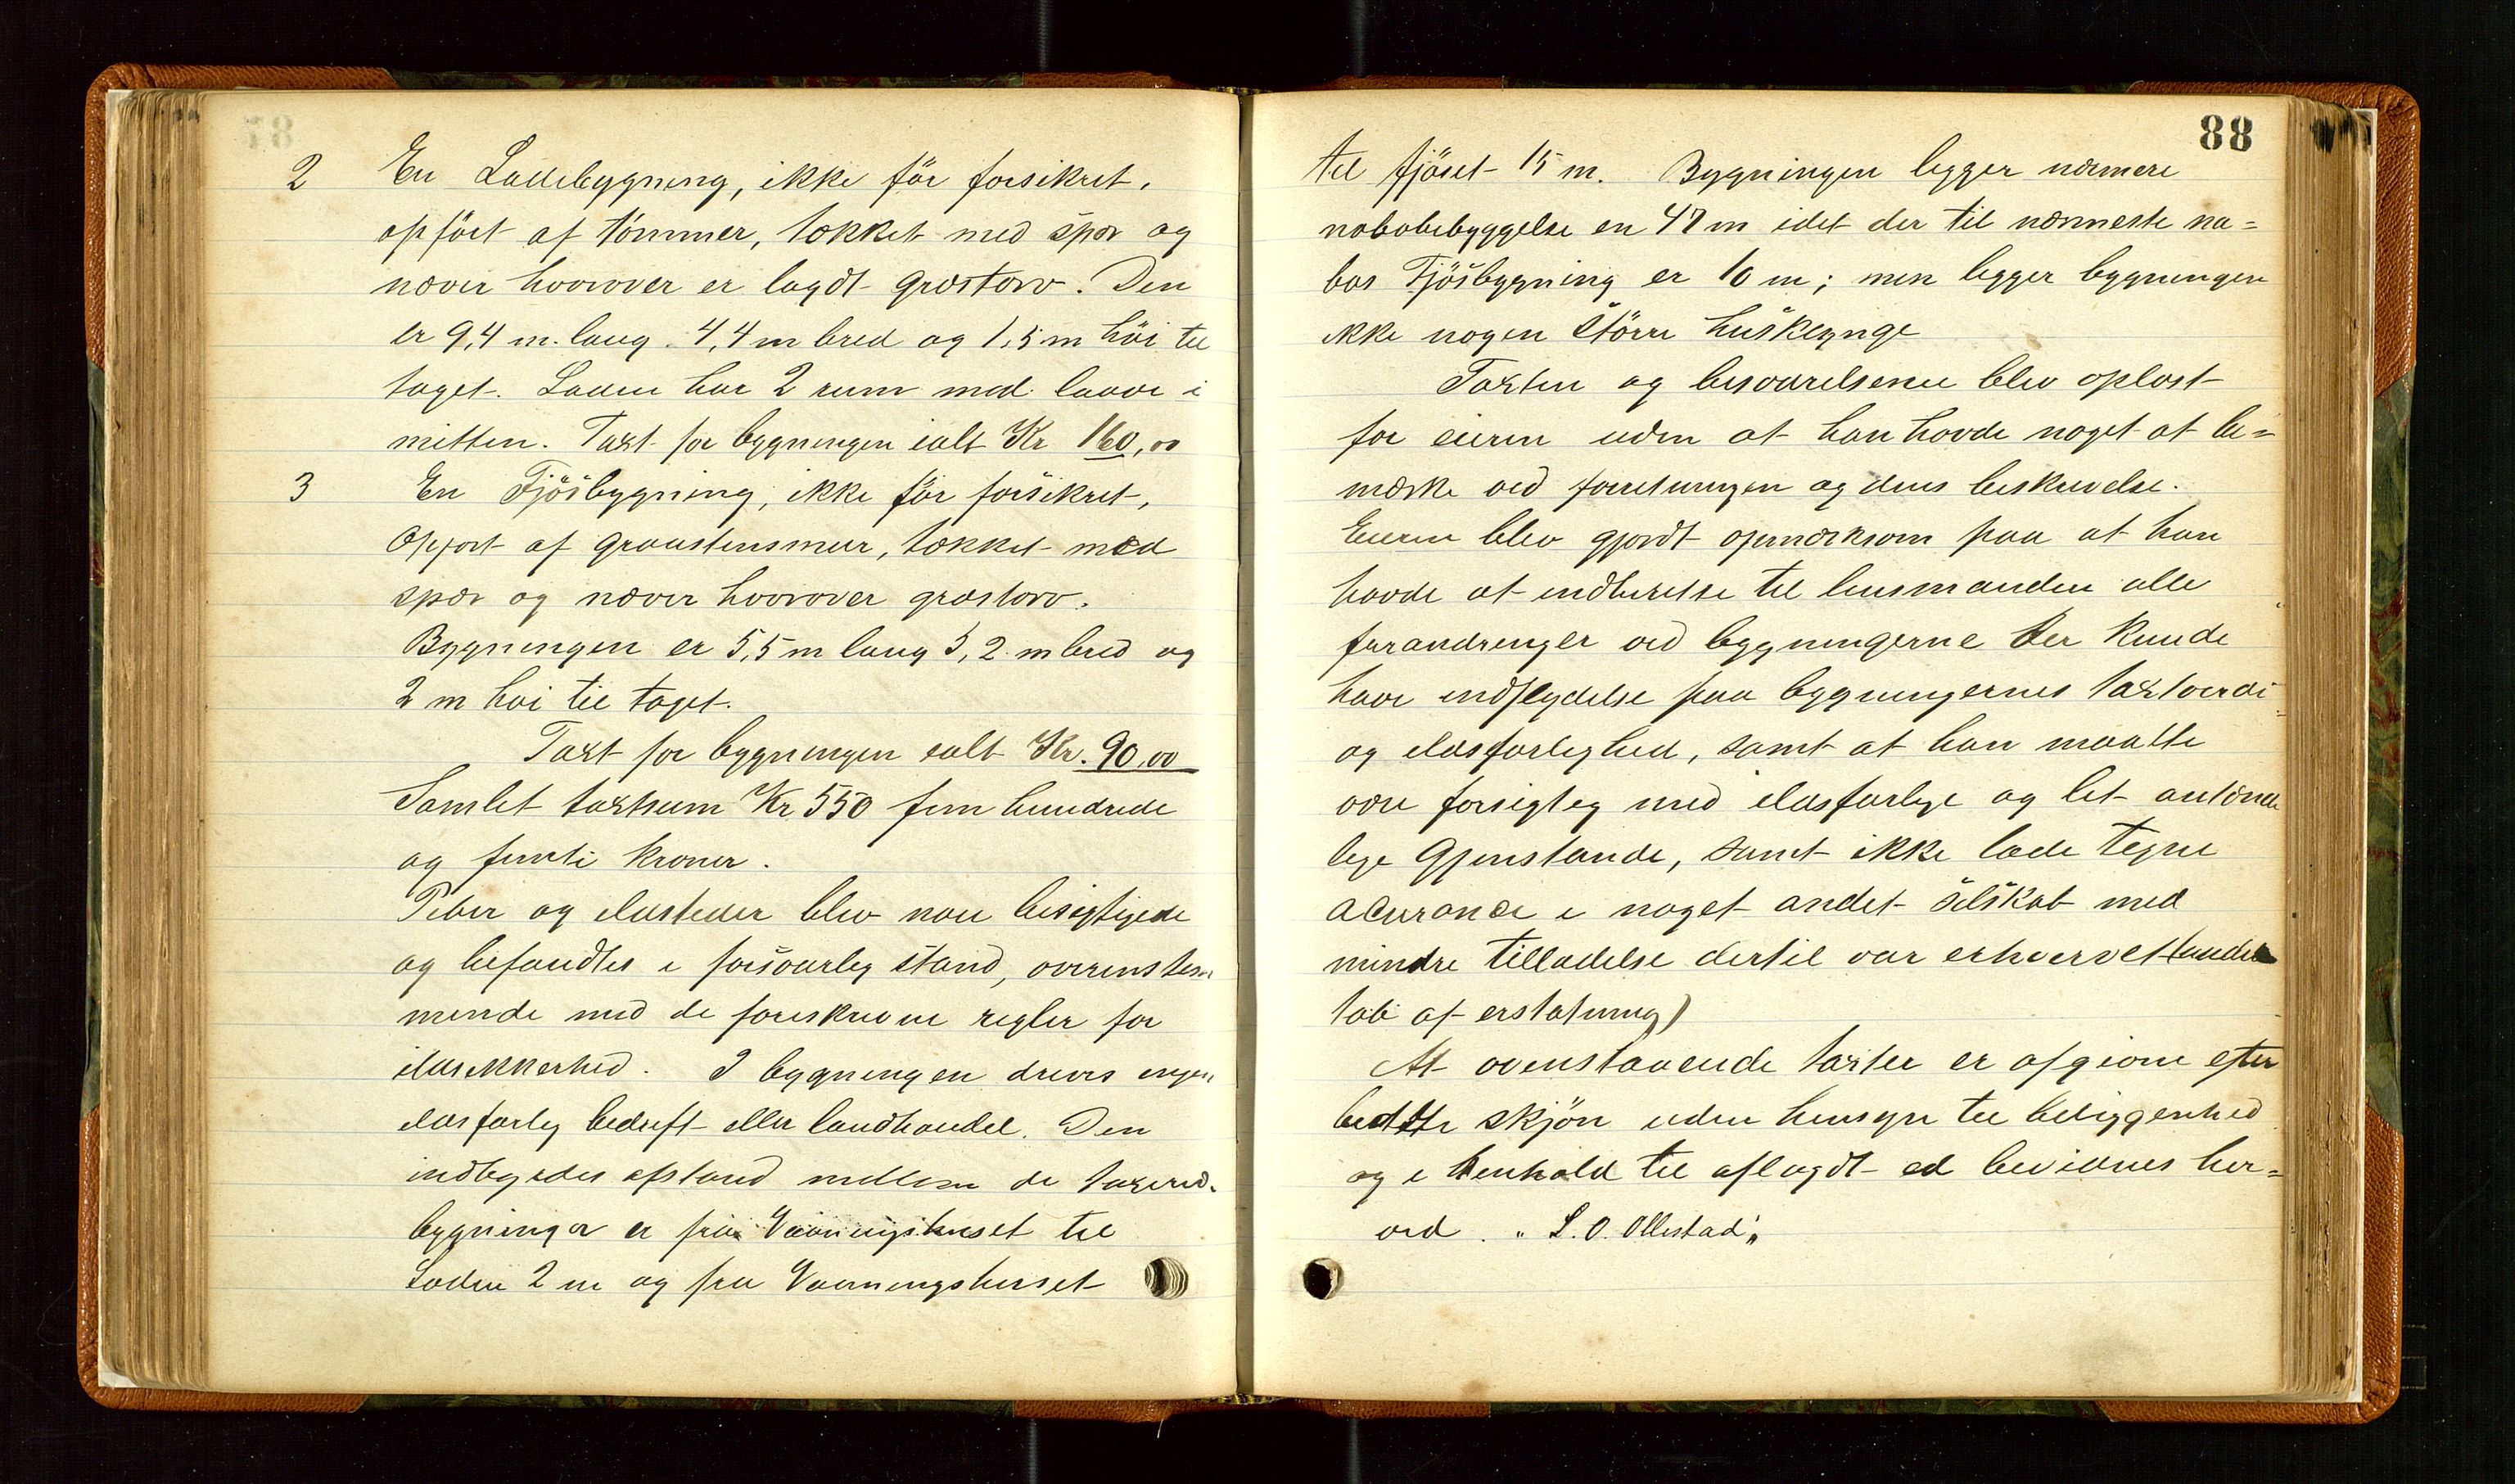 2 En Ladebygning, ikke før forsikret,
opført af tømmer, tækket med spær og
næver hvorover er lagdt græstorv. Den
er 9,4 m. lang. 4,4 m bred og 1,5 m høi til
taget. Laden har 2 rum med laave i
mitten. Taxt for bygningen ialt Kr 160,00
3 En Fjøsbygning, ikke før forsikret,
Opført af graastensmur, tækket med
spær og næver hvorover græstorv.
Bygningen er 5,5 m lang 3,2 m bred og
2 m høi til taget.
Taxt for bygningen ialt Kr. 90,00
Samlet taxtsum Kr 550 fem hundrede
og femti kroner.
Piber og ildsteder blev nøie besigtigede
og befandtes i forsvarlig stand, overenstem
mende med de foreskrevne regler for
ildsikkerhed. I bygningen drives ingen
ildsfarlig bedrift eller landhandel. Den
indbyrdes afstand mellem de taxered.
bygninger er fra Vaaningshuset til
Laden 2 m og fra Vaaningshuset
88
til fjøset 15 m. Bygningen ligger nærmere
nabobebyggelse en 47 m idet der til nærmeste na=
bos Fjøsbygning er 10 m; men ligger bygningen
ikke nogen større husklynge
Taxten og besvarelserne blev oplæst
for eieren uden at han havde noget at be=
mærke ved forretningen og dens beskrivelse.
Eieren blev gjordt opmærksom paa at han
havde at indberette til lensmanden alle
forandringer ved bygningerne der kunde
have indflydelse paa bygningernes taxtverdi
og ildsfarlighed, samt at han maatte
være forsigtig med ildsfarlige og let antænde
lige Gjenstande, samt ikke lade tegne
acurance i noget andet selskab med
mindre tilladelse dertil var erhvervet (under
tab af erstatning)
At ovenstaaende taxter er afgivne efter
bedste skjøn uden hensyn til beliggenhed
og i henhold til aflagdt ed bevidnes her=
ved. " L. O. Ollestad"